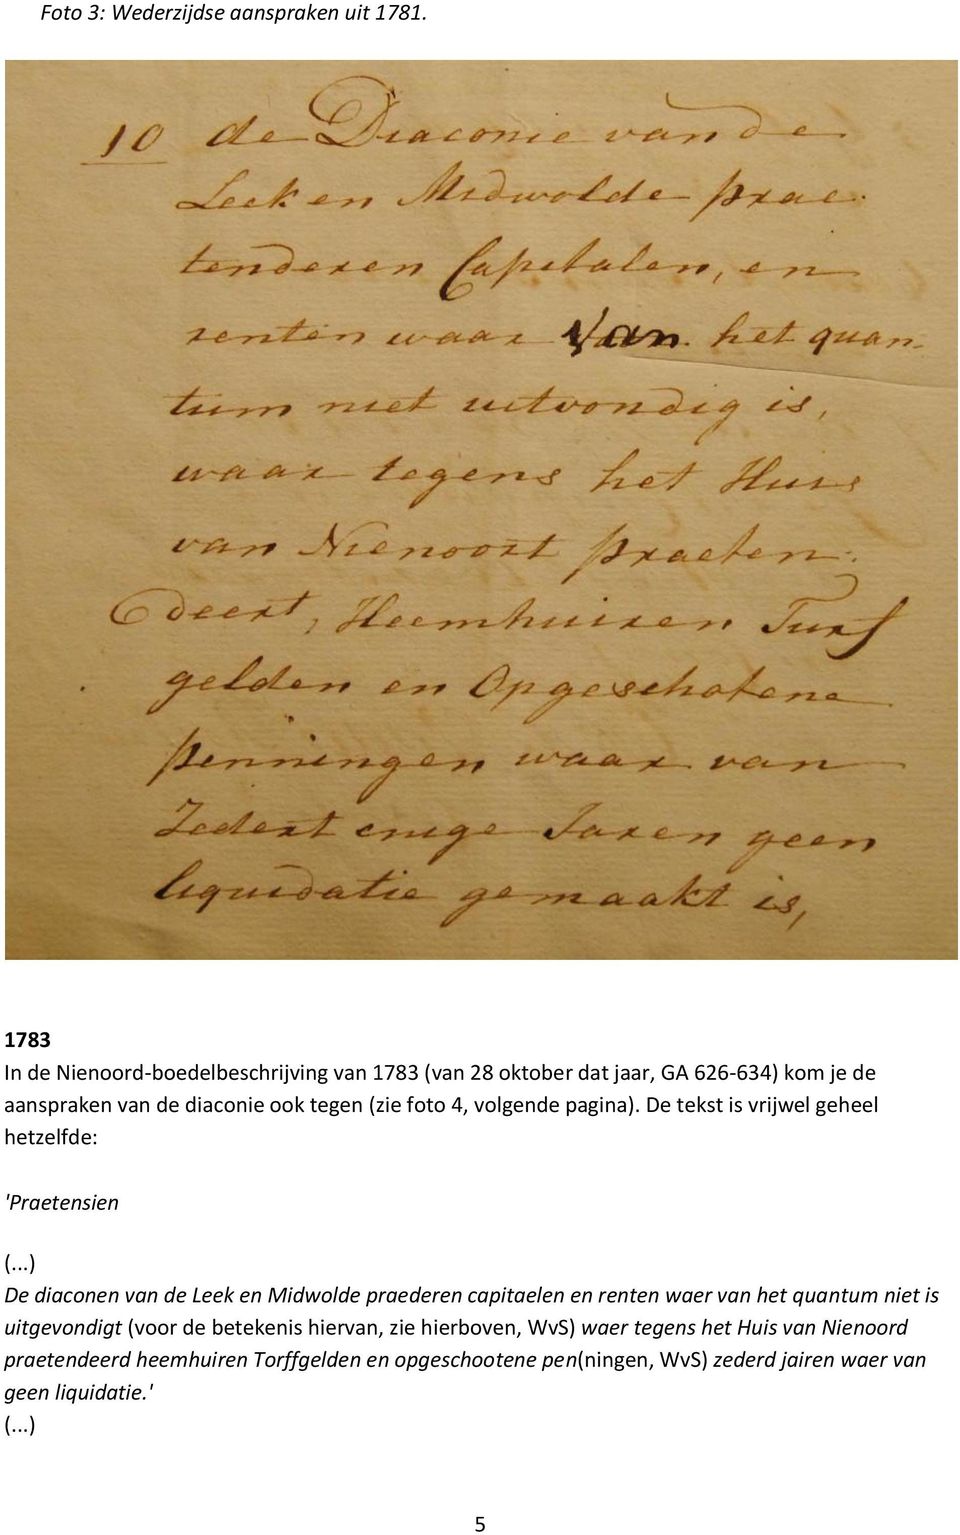 Foto 3: Wederzijdse aanspraken uit 1781.
10 de Diaconie van de
Leek en Midwolde prae-
tenderen Capitalen, en
renten waar van het quan-
tum niet uitvondig is,
waar tegens het Huis
van Nienoort praeten-
deert, Heemhuiren Turf
gelden en Opgeschotene
penningen waar van
Zedert enige Jaren geen
liquidatie gemaakt is,
1783
In de Nienoord-boedelbeschrijving van 1783 (van 28 oktober dat jaar, GA 626-634) kom je de
aanspraken van de diaconie ook tegen (zie foto 4, volgende pagina). De tekst is vrijwel geheel
hetzelfde:
'Praetensien
(...)
De diaconen van de Leek en Midwolde praederen capitaelen en renten waer van het quantum niet is
uitgevondigt (voor de betekenis hiervan, zie hierboven, WvS) waer tegens het Huis van Nienoord
praetendeerd heemhuiren Torffgelden en opgeschootene pen(ningen, WvS) zederd jairen waer van
geen liquidatie.'
(...)
5